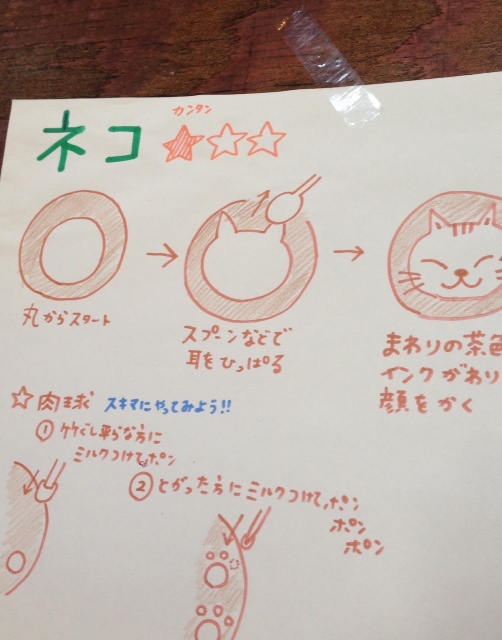 カンタン
ネコ
丸からスタート
スプーンなどで
耳をひっぱる
まわりの茶色
インクがわり
顔をかく
☆肉球 スキマにやってみよう!!
① 竹ぐし平らな方に
ミルクつけてポン
② とがった方にミルクつけてポン
ポン
ポン